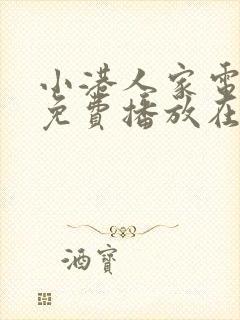 小港人家電
免費播放在
酒寶